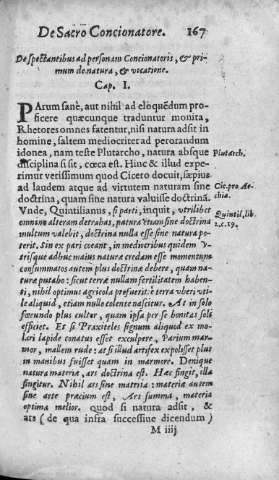 De Sacro Concionatore. 167
De spectantibus ad personam Concionatoris, & pri-
mum de natura, & vocatione.
Cap. I.
PArum sanè, aut nihil ad eloquẽdum pro-
ficere quæcunque traduntur monita,
Rhetores omnes fatentur, nisi natura adsit in
homine, saltem mediocriter ad perorandum
idonea, nam teste Plutarcho, natura absque
Plutarch.
disciplina si sit, cœca est. Hinc & illud expe-
rimur verissimum quod Cicero docuit, sæpius
ad laudem atque ad virtutem naturam sine
Cic. pro Ar-
chia.
doctrina, quam sine natura valuisse doctrinã.
Vnde, Quintilianus, si parti, inquit, vtrilibet
Quintil. lib.
2. c. 19.
omnino alteram detrahas, natura etiam sine doctrina
multum valebit, doctrina nulla esse sine natura po-
terit. Sin ex pari coeant, in mediocribus quidem v-
trisque adhuc maius naturæ credam esse momentum:
consummatos autem plus doctrinæ debere, quam na-
turæ putabo: sicut terræ nullam fertilitatem haben-
ti, nihil optimus agricola profuerit: è terra vberi vti-
le aliquid, etiam nullo colente nascitur. At in solo
fœcundo plus cultor, quam ipsa per se bonitas soli
efficiet. Et si Praxiteles signum aliquod ex mo-
lari lapide conatus esset exculpere, Parium mar-
mor, mallem rude: at si illud artifex expolisset plus
in manibus fuisset quam in marmore. Denique
natura materiæ, ars doctrina est. Hæc fingit, illa
fingitur. Nihil ars sine materia: materiæ autem
sine arte precium est, Ars summa, materia
optima melior. quod si natura adsit, &
ars (de qua infra successiue dicendum)
M iiij